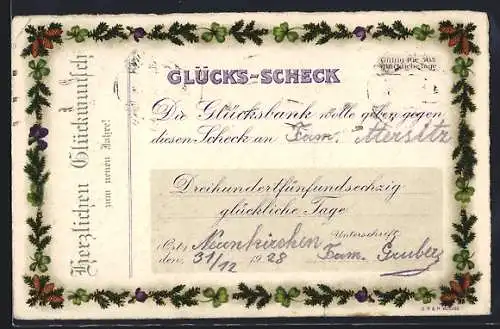 Herzlichen Glückwunsch
zum neuen Jahre!
GLÜCKS-SCHECK
Gültig für 365
glückliche Tage
Die Glücksbank wolle geben gegen
diesen Scheck an Fam. Mersitz
Dreihundertfünfundsechzig
glückliche Tage
Unterschrift
Ort, Neunkirchen Fam. Gruber
den, 31/12 1928